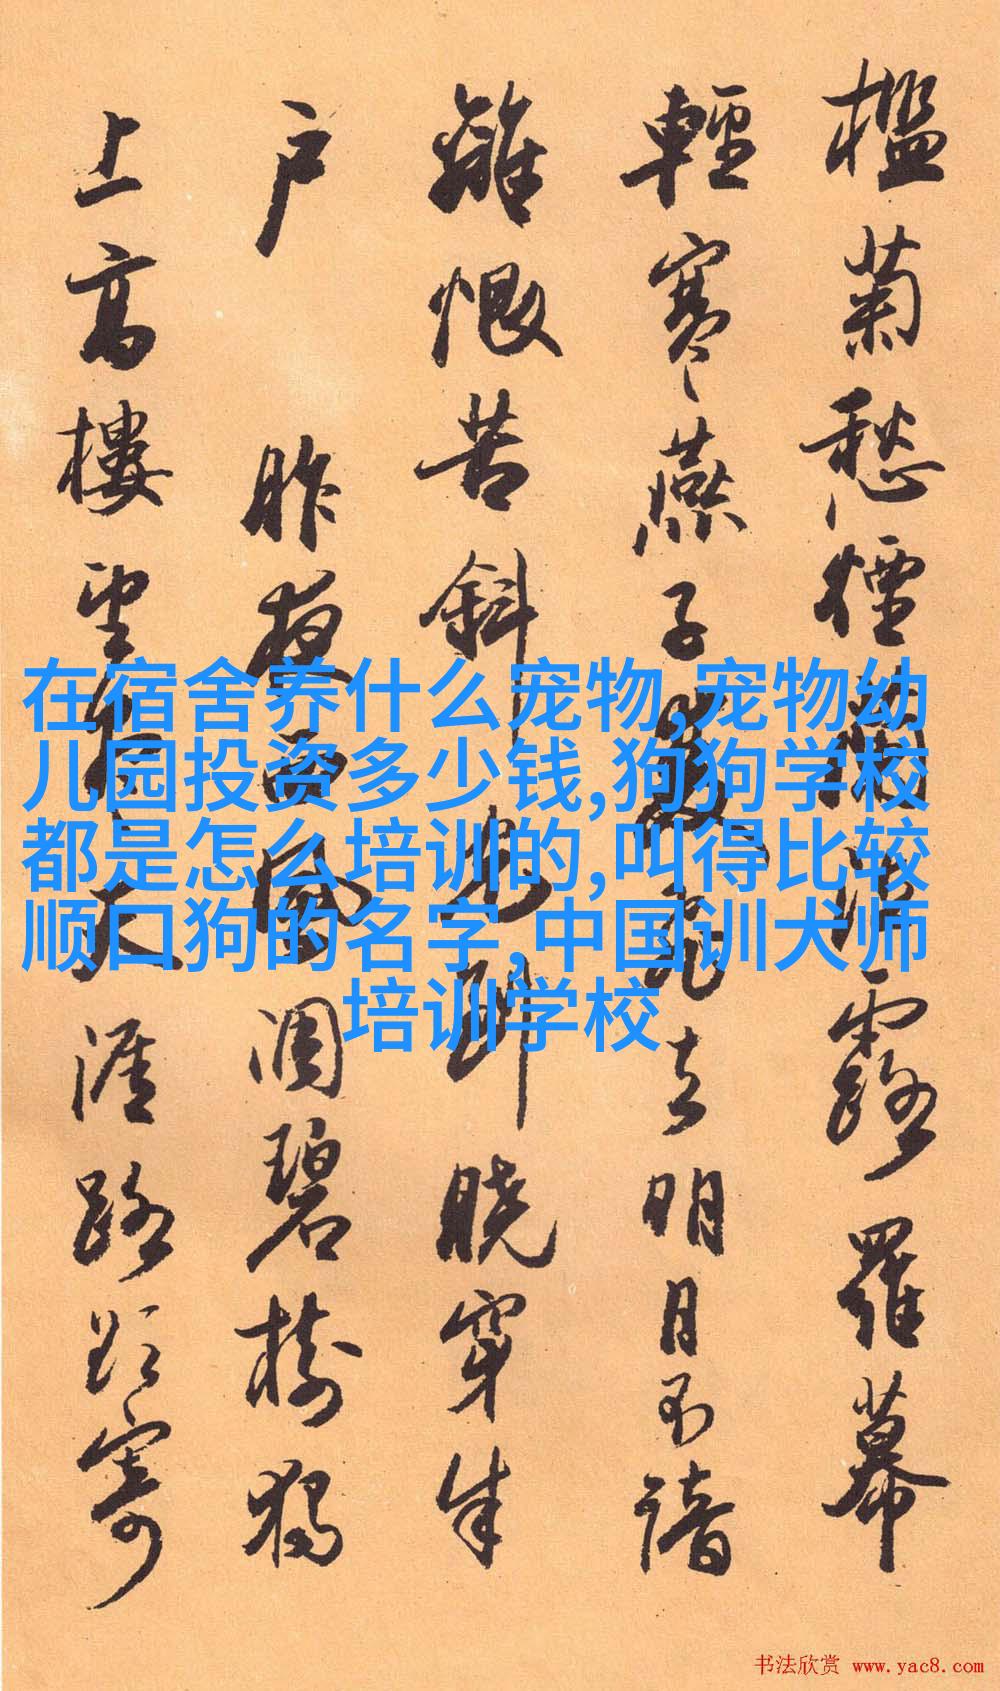 檻菊愁煙蘭泣露羅幕
輕寒燕子雙飛去明月不諳
離恨苦斜光到曉穿朱
户昨夜西風凋碧樹獨
上高樓望盡天涯路欲寄
在宿舍养什么宠物,宠物幼
儿园投资多少钱,狗狗学校
都是怎么培训的,叫得比较
顺口狗的名字,中国训犬师
培训学校
书法欣赏 www.yac8.com